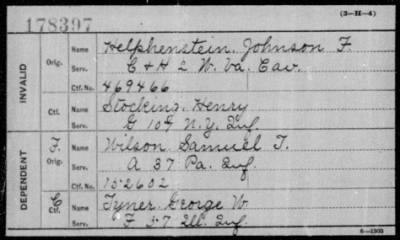 178397
(3-H-4)
INVALID
Orig.
Name Helphenstein, Johnson F.
Serv. C + H 2 W. Va. Cav.
Ctf. No. 469466
Ctf.
Name Stocking, Henry
Serv. G 109 N.Y. Inf.
DEPENDENT
F.
Orig.
Name Wilson, Samuel T.
Serv. A 37 Pa. Inf.
Ctf. No. 152602
C
Ctf.
Name Tyner, George W.
Serv. F 57 Ill. Inf.